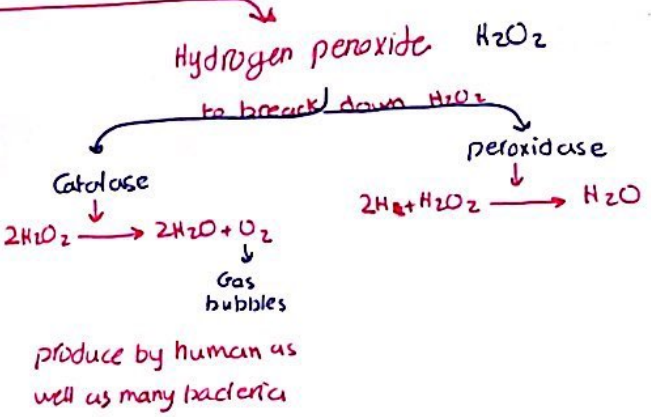 Hydrogen peroxide H₂O₂
to breack down H₂O₂
Catalase
2H₂O₂ → 2H₂O + O₂
Gas
bubbles
produce by human as
well as many bacteria
peroxidase
2H + H₂O₂ → H₂O